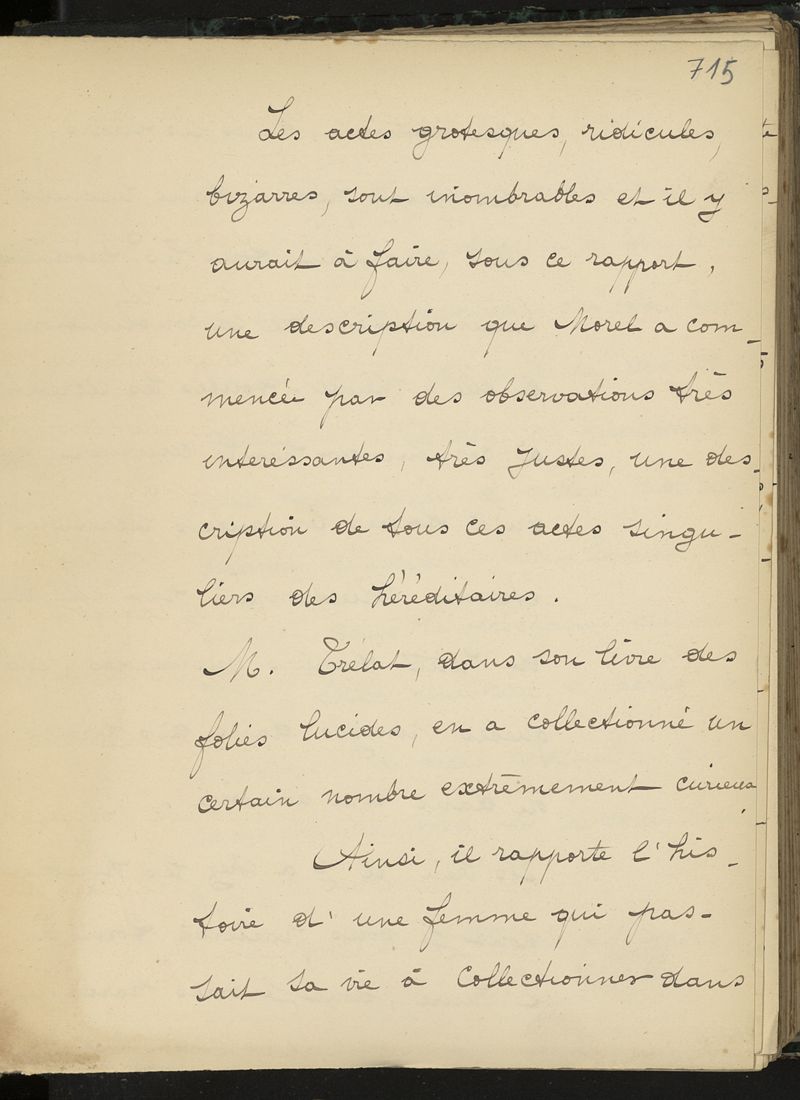 715
Les actes grotesques, ridicules,
bizarres, sont inombrables et il y
aurait à faire, sous ce rapport,
une description que Morel a com-
mencée par des observations très
interéssantes, très justes, une des-
cription de tous ces actes singu-
liers des héréditaires.
M. Trélat, dans son livre des
folies lucides, en a collectionné un
certain nombre extrêmement curieux.
Ainsi, il rapporte l'his-
toire d'une femme qui pas-
sait sa vie à collectionner dans